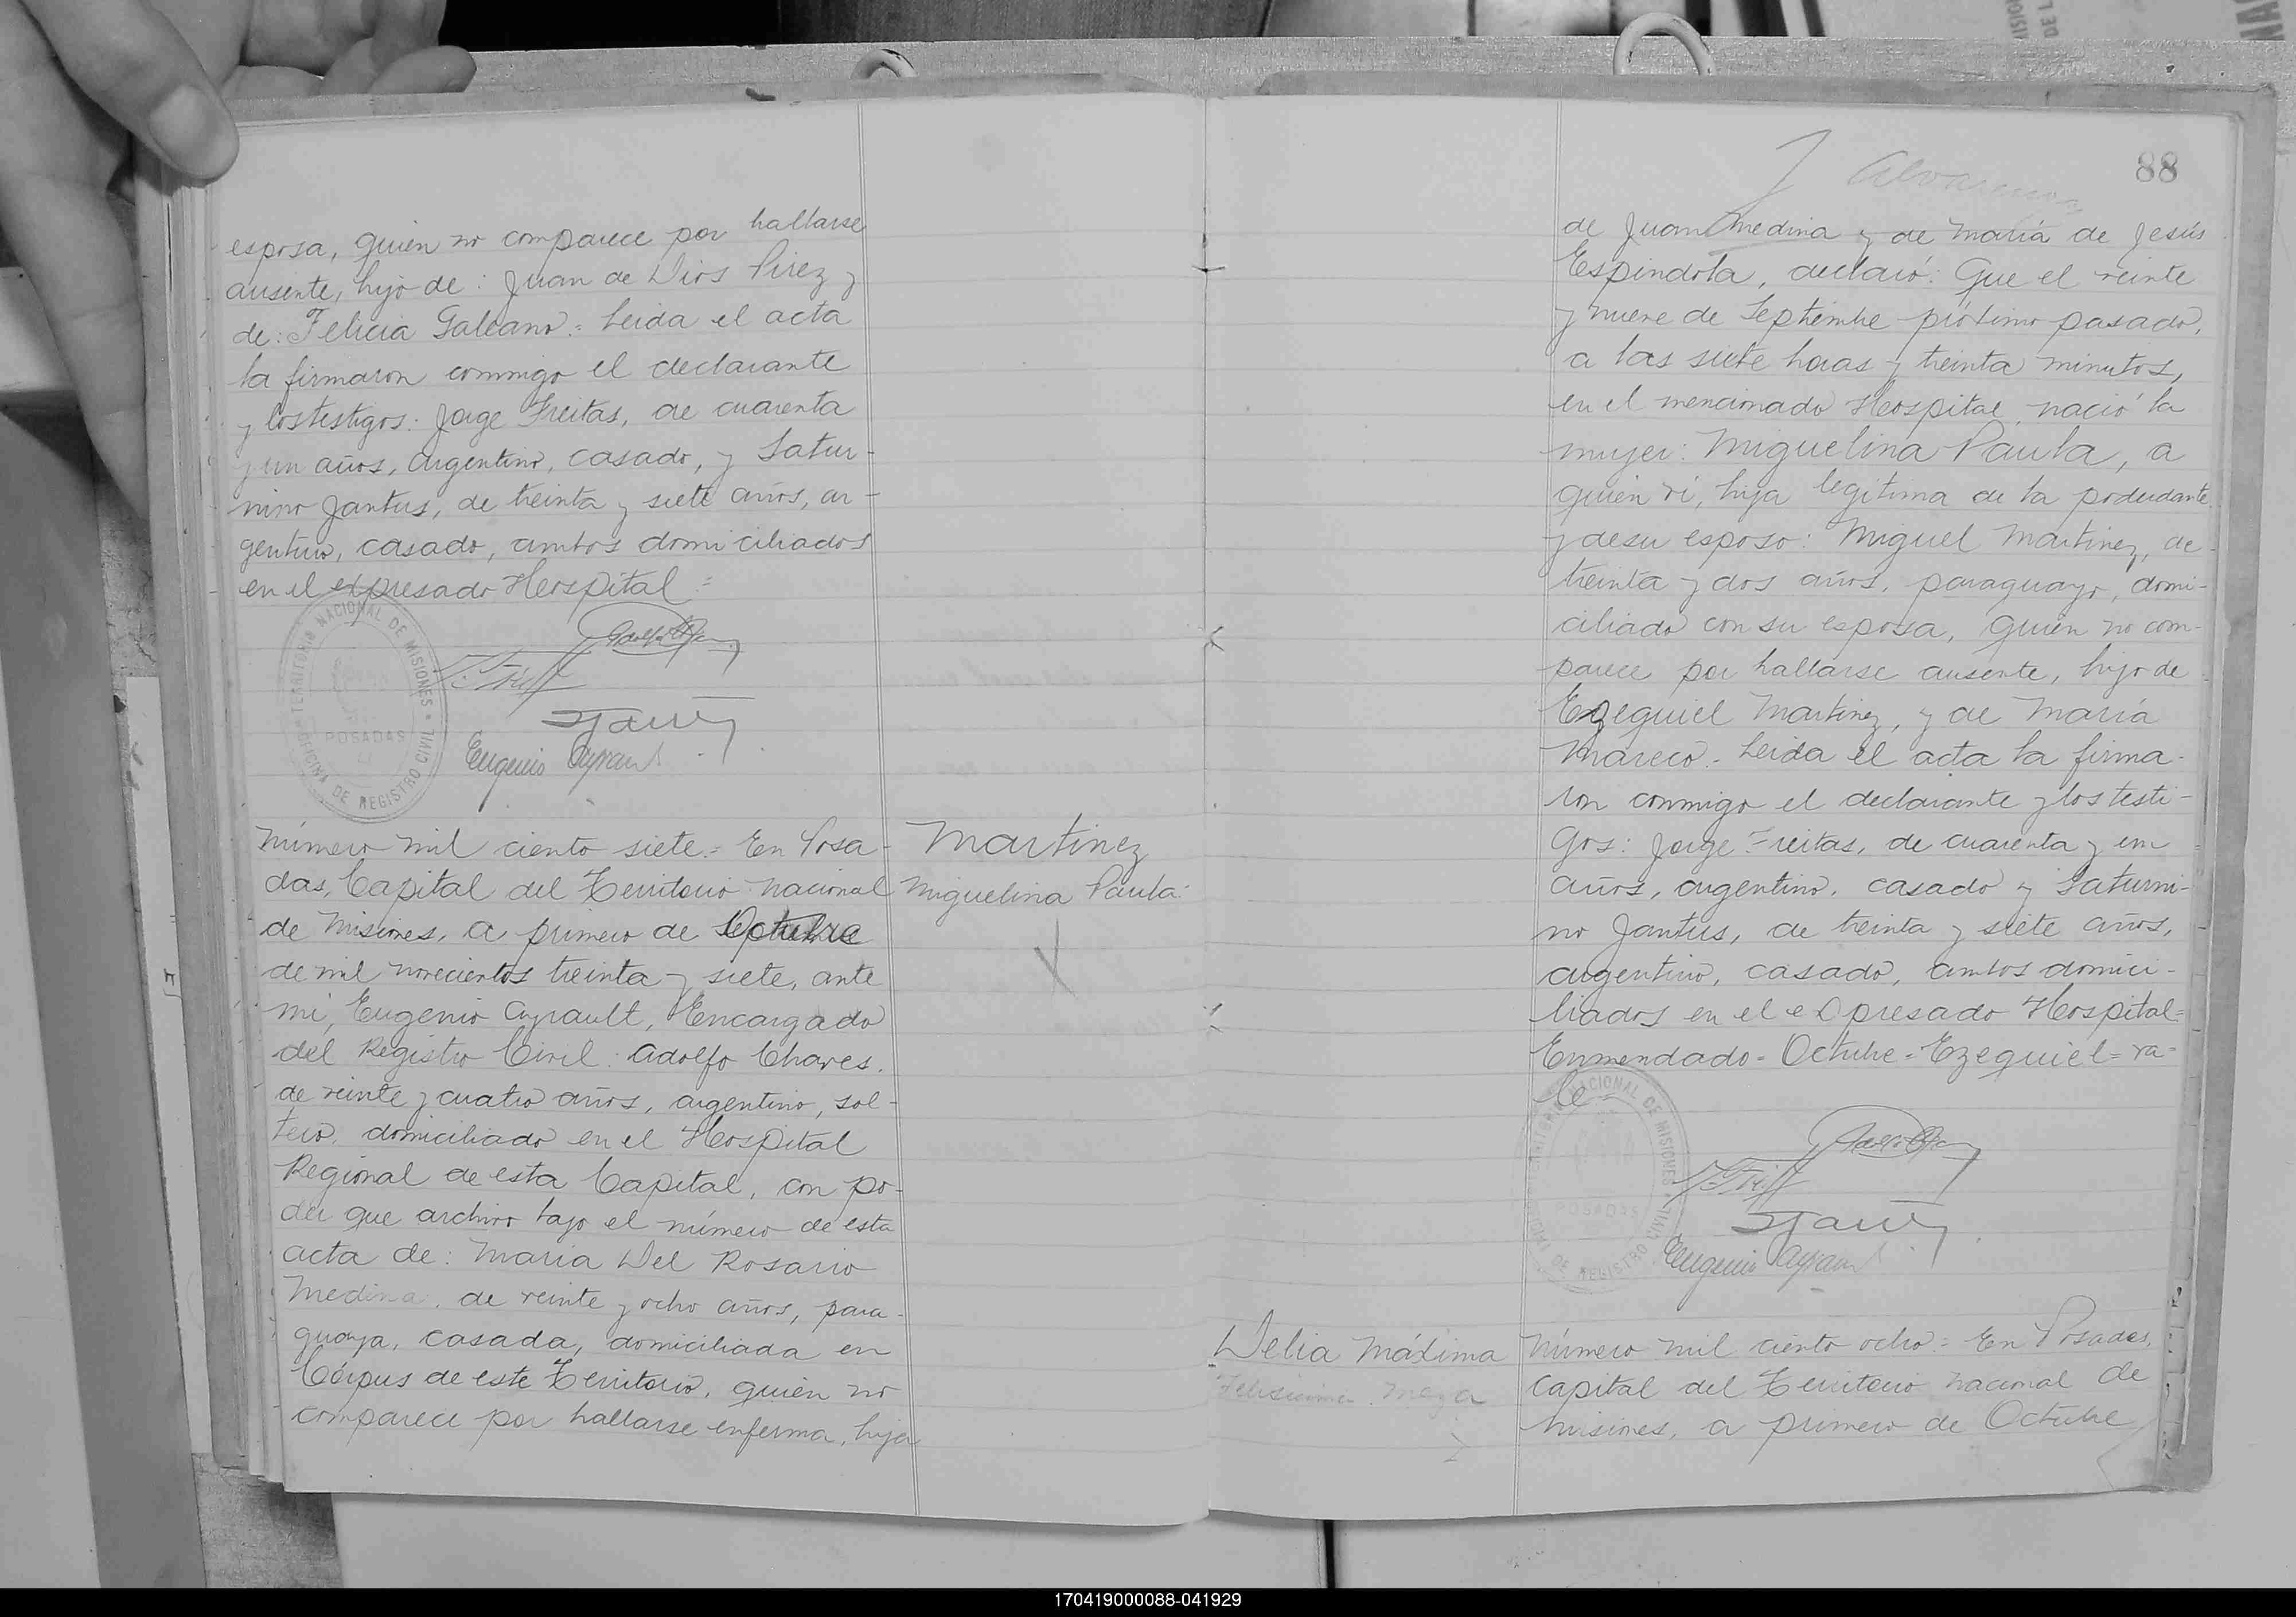 esposa, quien no comparece por hallarse
ausente, hijo de: Juan de Dios Pirez y
de: Felicia Galeano.= Leida el acta
la firmaron conmigo el declarante
y los testigos: Jorge Freitas, de cuarenta
y un años, argentino, casado, y Satur-
nino Jantus, de treinta y siete años, ar-
gentino, casado, ambos domiciliados
en el expresado Hospital=
TERRITORIO NACIONAL DE MISIONES
POSADAS
OFICINA DE REGISTRO CIVIL
Eugenio Ayrault
Número mil ciento siete.= En Posa-
das, Capital del Territorio nacional
de Misiones, a primero de Octubre
de mil novecientos treinta y siete, ante
mi, Eugenio Ayrault, Encargado
del Registro Civil: Adolfo Chaves.
de veinte y cuatro años, argentino, sol-
tero, domiciliado en el Hospital
Regional de esta Capital, con po-
der que archivo bajo el número de esta
acta de: Maria Del Rosario
Medina, de veinte y ocho años, para-
guaya, casada, domiciliada en
Córpus de este Territorio, quien no
comparece por hallarse enferma, hija
Martinez
Miguelina Paula:
X
88
de Juan Medina y de María de Jesús
Espindola, declaró: Que el veinte
y nueve de Septiembre próximo pasado,
a las siete horas y treinta minutos,
en el mencionado Hospital, nació la
mujer: Miguelina Paula, a
quien ví, hija legitima de la poderdante
y de su esposo: Miguel Martinez, de
treinta y dos años, paraguayo, domi-
ciliado con su esposa, quien no com-
parece por hallarse ausente, hijo de
Ezequiel Martinez, y de María
Mareco.- Leida el acta la firma-
ron conmigo el declarante y los testi-
gos: Jorge Freitas, de cuarenta y un
años, argentino, casado y Saturni-
no Jantus, de treinta y siete años,
argentino, casado, ambos domici-
liados en el expresado Hospital=
Enmendado= Octubre= Ezequiel= va-
le
NACIONAL DE MISIONES
POSADAS
DE REGISTRO CIVIL
Eugenio Ayrault
Delia Máxima
Meza
Número mil ciento ocho.= En Posadas,
Capital del Territorio nacional de
Misiones, a primero de Octubre
170419000088-041929